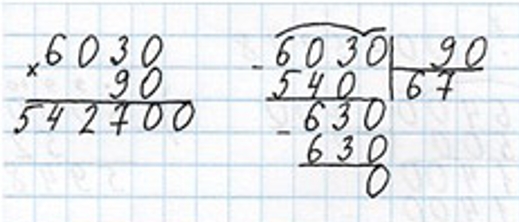 × 6030
90
542700
- 6030 | 90
540 | 67
- 630
630
0